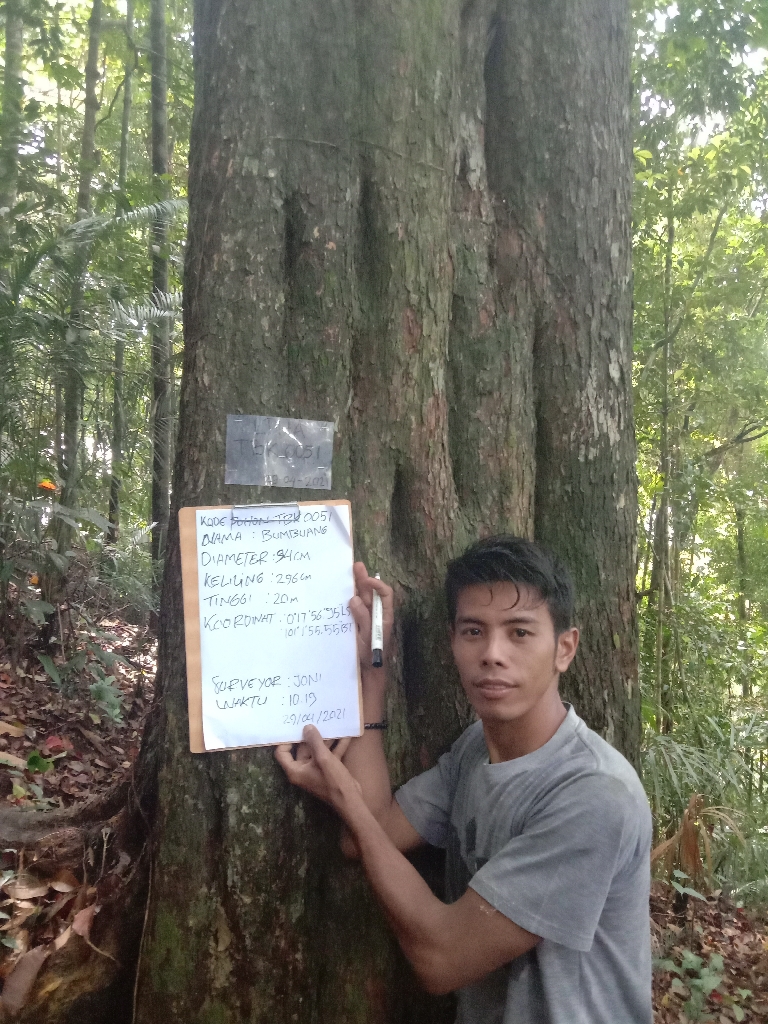 TBK 0051
04-2021
KODE POHON TBK 0051
NAMA : BUMBUANG
DIAMETER : 94 CM
KELILING : 296 cm
TINGGI : 20 m
KOORDINAT : 0°17'56.95"LS
101°1'55.55"BT
SURVEYOR : JONI
WAKTU : 10.19
29/04/2021